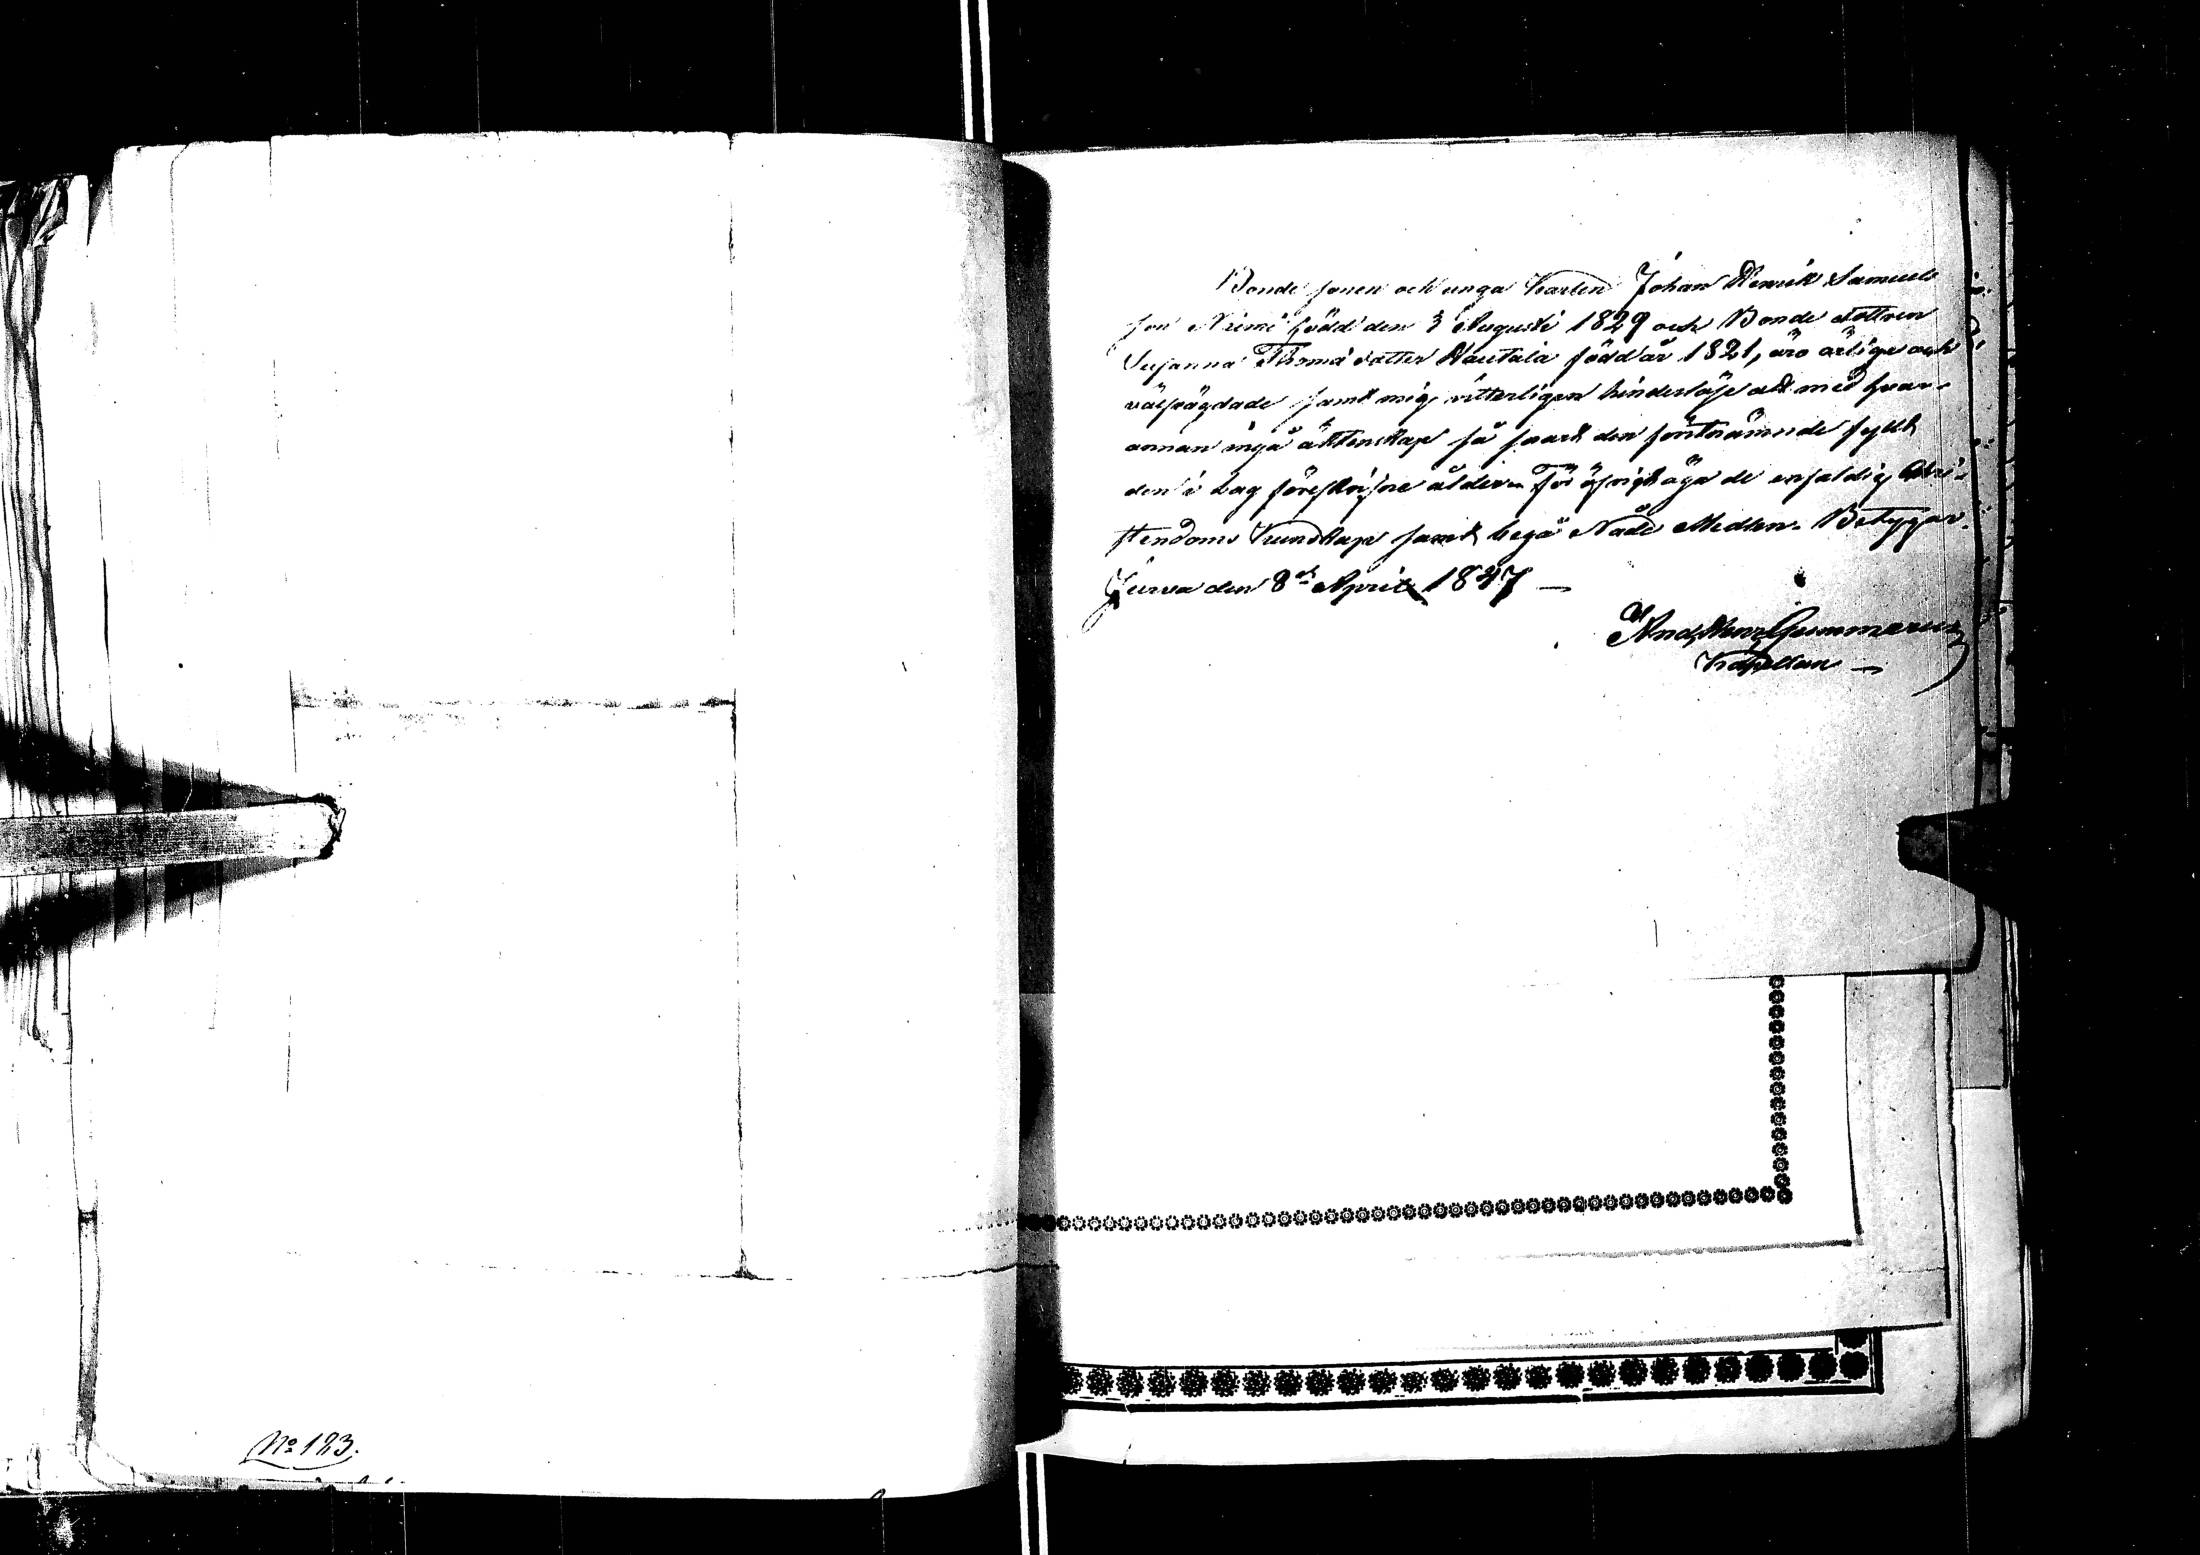 Bonde sonen och unga Karlen Johan Henrik Samuels
son Niemi född den 3 Augusti 1829 och Bonde dottren
Susanna Thomä dotter Rautala född år 1821, äro ärlige och
välfrägdade samt mig vitterligen hinderlöse att med hvar-
annan ingå äktenskap så snart den förstnämnde fyllt
den i Lag föreskrifne åldern. För öfrigt äga de enfaldig Chri-
stendoms Kunskap samt begå Nåde Medlen. Betygar.
Jurva den 8de April 1847 —
And. Henr. Gummerus
Kapellan —
No 123.